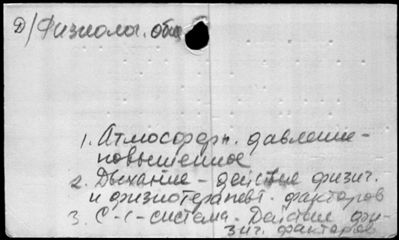 Д/Физиолог. общ
1. Атмосферн. давление -
повышенное
2. Дыхание - действие физич.
и физиотерапевт. факторов
3. С-с-система. Действие фи-
зич. факторов